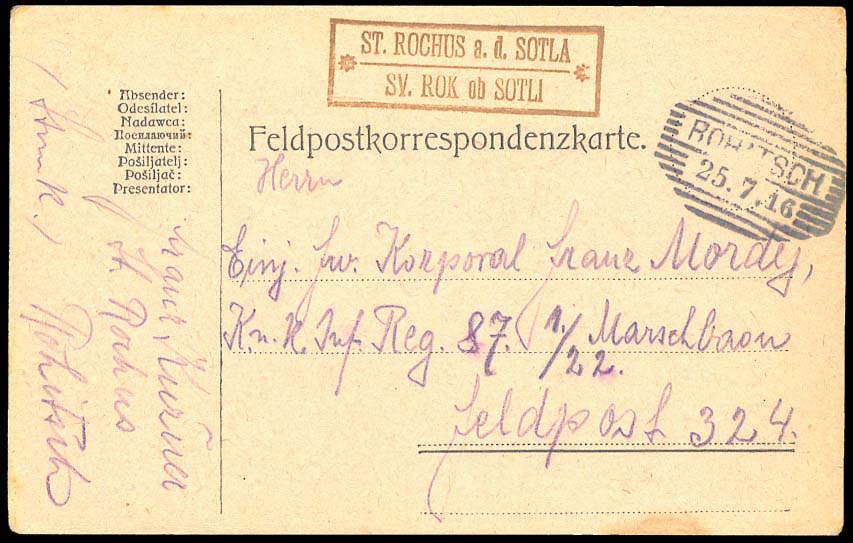 ST. ROCHUS a. d. SOTLA
SV. ROK ob SOTLI
Absender:
Odesílatel:
Nadawca:
Посилаючий:
Mittente:
Pošiljatelj:
Pošiljač:
Presentator:
Feldpostkorrespondenzkarte.
ROHITSCH
25. 7. 16
Herrn
Einj. frw. Korporal Franz Mordej,
K. u. K. Inf. Reg. 87. 1./22. Marschbaon
Feldpost 324.
St. Rochus
Rohitsch